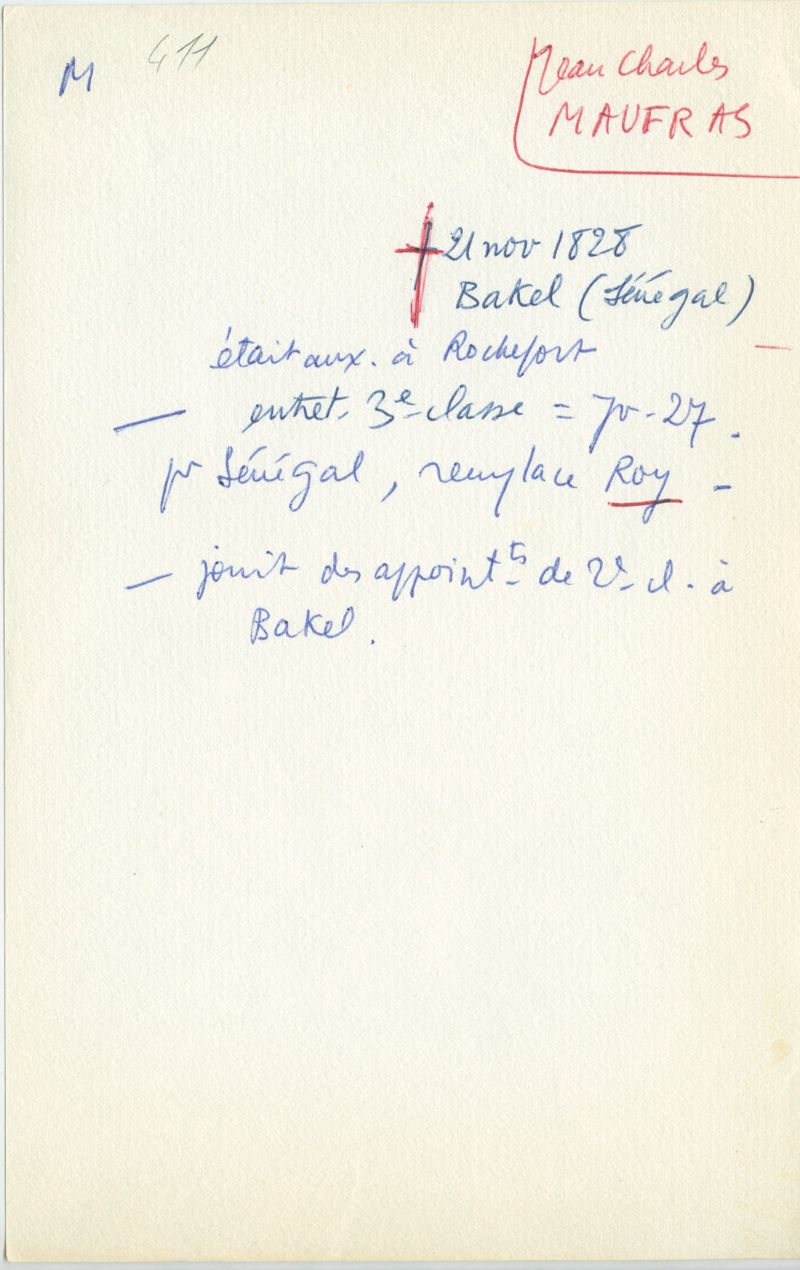 M 411
Jean Charles
MAUFRAS
21 nov 1828
Bakel (Sénégal)
était aux. à Rochefort
— entret. 3e classe = - 27.
pr Sénégal, remplace Roy -
— jouit des appointts de 2e cl. à
Bakel.